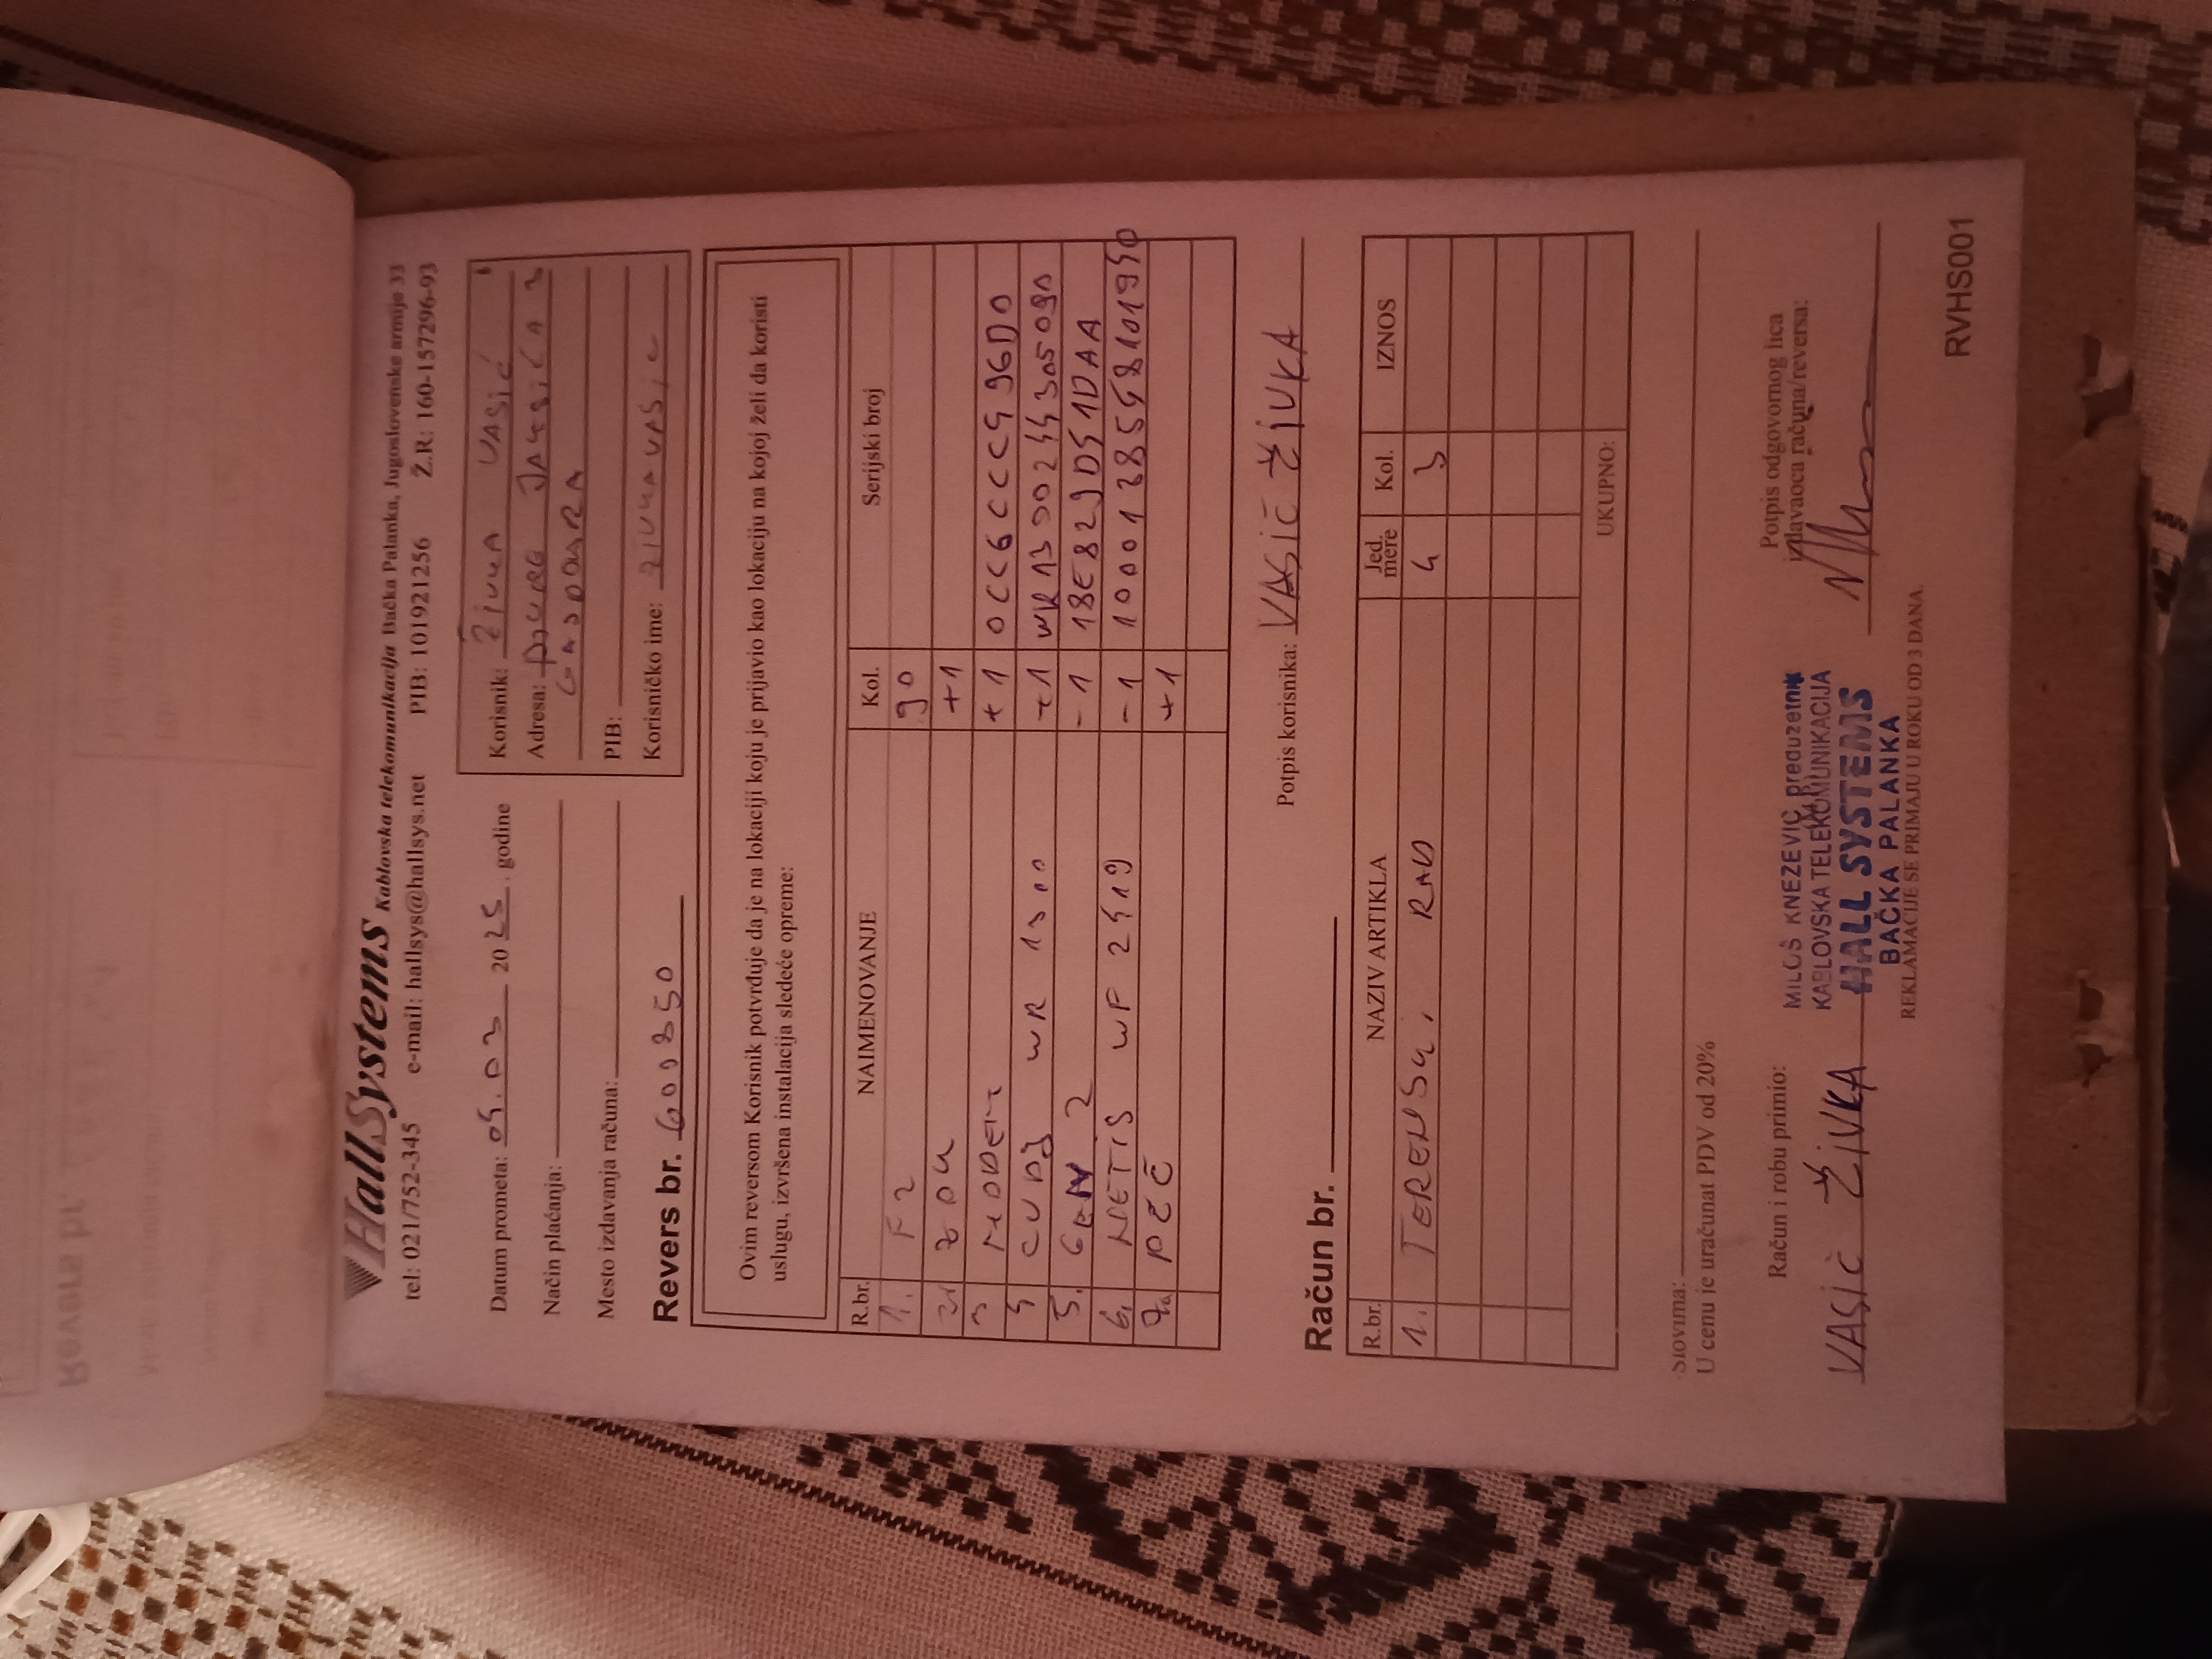 HallSystems Kablovska telekomunikacija Bačka Palanka, Jugoslovenske armije 33
tel: 021/752-345 e-mail: hallsys@hallsys.net PIB: 101921256 Ž.R: 160-157296-93
Datum prometa: 05.03 2025. godine
Način plaćanja:
Mesto izdavanja računa:
Korisnik: ŽIVKA VASIĆ
Adresa: ĐURE JAKŠIĆA 3
PIB:
Korisničko ime: ZIVKAVASIC
Revers br. 600850
Ovim reversom Korisnik potvrđuje da je na lokaciji koju je prijavio kao lokaciju na kojoj želi da koristi
uslugu, izvršena instalacija sledeće opreme:
R.br. NAIMENOVANJE Kol. Serijski broj
1. F2 90
2. ZOK +1
3 MODEM +1 0CC6CCC996D0
4 CUDY WR 1300 +1 WR1300244305090
5. GEN 2 -1 18E829D51DAA
6. NETIS WF 2419 -1
7. PZČ +1
Potpis korisnika: VASIĆ ŽIVKA
Račun br.
R.br. NAZIV ARTIKLA Jed. mere Kol. IZNOS
1. TERENSKI RAD h 3
UKUPNO:
Slovima:
U cenu je uračunat PDV od 20%
Račun i robu primio:
VASIĆ ŽIVKA
MILOŠ KNEZEVIĆ preduzetnik
KABLOVSKA TELEKOMUNIKACIJA
HALL SYSTEMS
BAČKA PALANKA
Potpis odgovornog lica
izdavaoca računa/reversa:
REKLAMACIJE SE PRIMAJU U ROKU OD 3 DANA
RVHS001